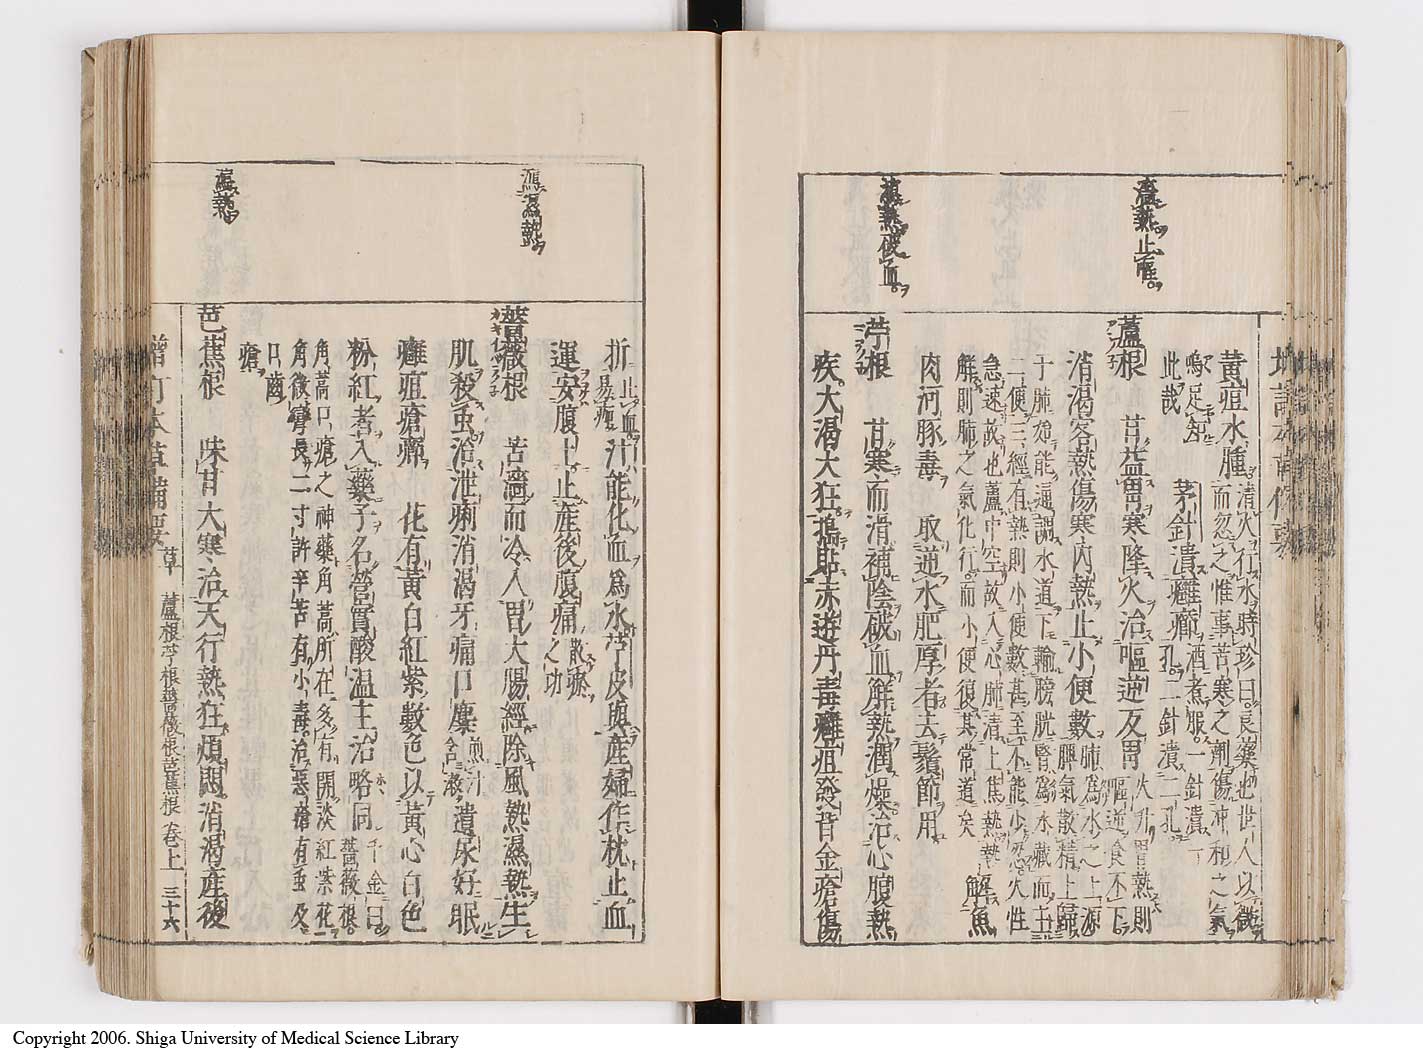 瀉熱止嘔
瀉熱破血
黃疸水腫清火行水時珍曰良藥也世人以微
而忽之惟事苦寒之劑傷沖和之氣
烏足知
此哉 茅針潰癰癤酒煮服一針潰一
孔二針潰二孔
蘆根 甘益胃寒降火治嘔逆反胃
胃熱則
嘔逆食不下
消渴客熱傷寒內熱止小便數肺為水之上源
脾氣散精上歸
于肺始能通調水道下輸膀胱腎為水藏而主
二便三經有熱則小便數甚至不能少忍火性
急速故也蘆中空故入心肺清上焦熱熱
解則肺之氣化行而小便復其常道矣 解魚
肉河豚毒 取逆水肥厚者去鬚節用
苧根 甘寒而滑補陰破血解熱潤燥治心膈熱
疾大渴大狂搗貼赤遊丹毒癰疽發背金瘡傷
瀉濕熱
瀉熱
折止血
易痂汁能化血為水苧皮與產婦作枕止血
運安腹上止產後腹痛散瘀
之功
薔薇根 苦濇而冷入胃大腸經除風熱濕熱生
肌殺蟲治泄痢消渴牙痛口糜煎汁
含漱遺尿好眠
癰疽瘡癬 花有黃白紅紫數色以黃心白色
粉紅者入藥子名營實酸溫主治略同千金曰
薔薇根
角蒿口瘡之神藥角蒿所在多有開淡紅紫花
角微彎長二寸許辛苦有小毒治惡瘡有蟲及
口齒
瘡
芭蕉根 味甘大寒治天行熱狂煩悶消渴產後
增訂本草備要 草 蘆根苧根薔薇根芭蕉根 卷上 三十六